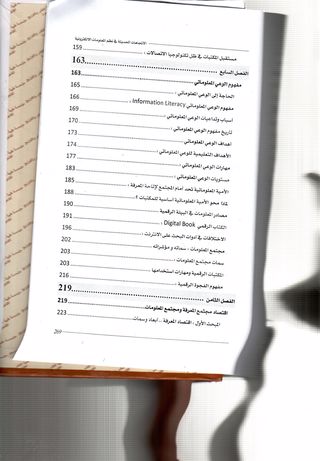 الاتجاهات الحديثة في نظم المعلومات الالكترونية
مستقبل المكتبات في ظل تكنولوجيا الاتصالات : 159
الفصل السابع 163
مفهوم الوعي المعلوماتي 163
الحاجة إلى الوعي المعلوماتي : 165
مفهوم الوعي المعلوماتي Information Literacy : 166
أسباب وتداعيات الوعي المعلوماتي : 169
تاريخ مفهوم الوعي المعلوماتي : 170
أهداف الوعي المعلوماتي : 173
الأهداف التعليمية للوعي المعلوماتي : 174
مهارات الوعي المعلوماتي : 177
مستويات الوعي المعلوماتي : 183
الأمية المعلوماتية تحد أمام المجتمع لإتاحة المعرفة : 185
لماذا محو الأمية المعلوماتية أساسية للمكتبات ؟ 188
مصادر المعلومات في البيئة الرقمية 190
الكتاب الرقمي Digital Book : 191
الاختلافات في أدوات البحث على الانترنت : 196
مجتمع المعلومات : سماته و مؤشراته 202
سمات مجتمع المعلومات : 203
المكتبات الرقمية ومهارات استخدامها 203
مفهوم الفجوة الرقمية : 216
الفصل الثامن 219
اقتصاد مجتمع المعرفة ومجتمع المعلومات 219
المبحث الأول : اقتصاد المعرفة .. أبعاد وسمات 223
269